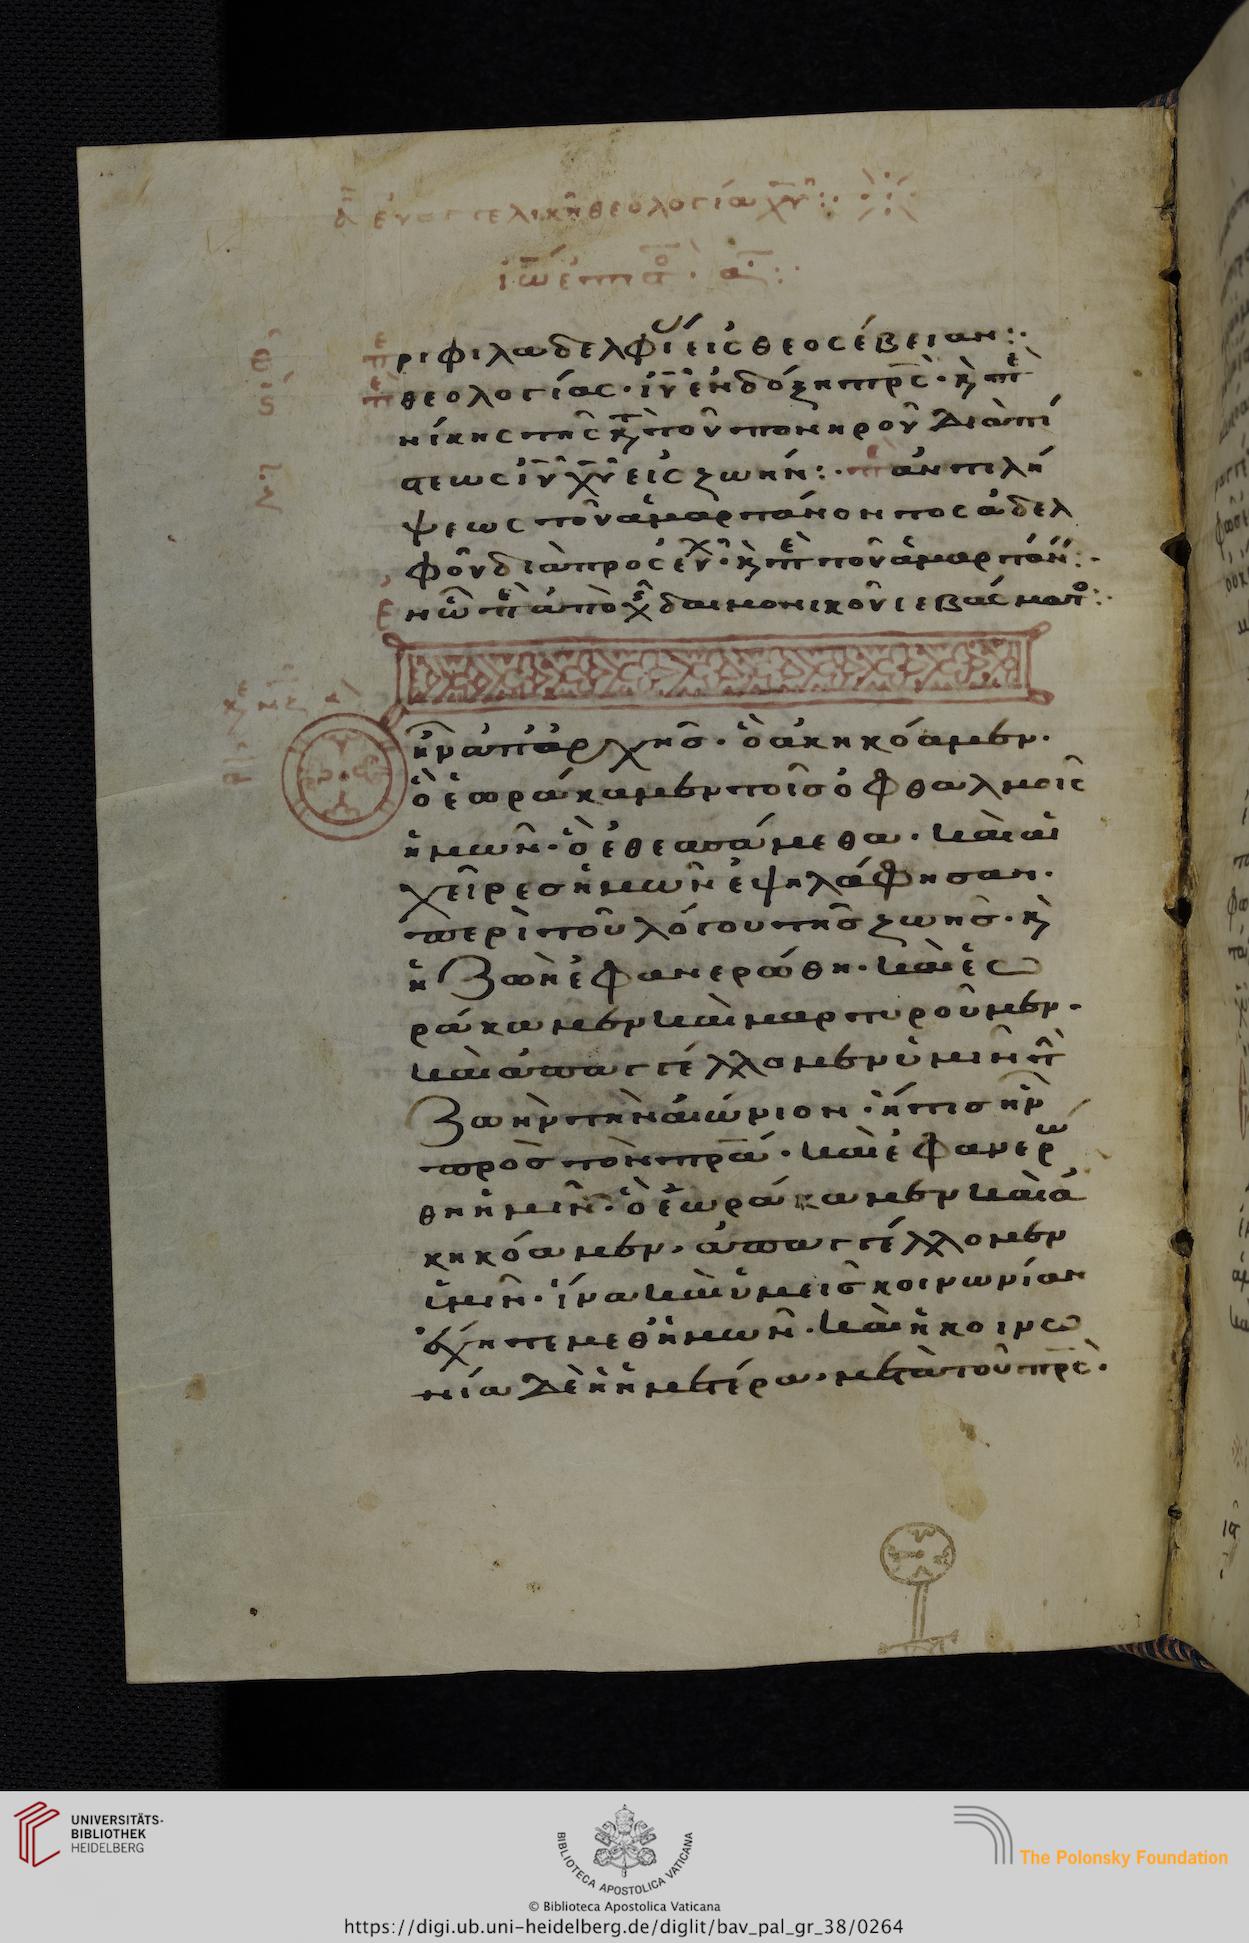 εὐαγγελικὴ θεολογία χυ :·
ἰω ἐπ α · α :·
ε
ς
ζ
ρι φιλαδελφί εἰς θεοσέβειαν :·
θεολογίας · ἰυ ἐν δόξη πρς · κ π
νίκης τῆς κτ τοῦ πονηροῦ διὰ πί
στεως ἰυ χυ εἰς ζωήν :· π ἀντιλή
ψεως τοῦ ἁμαρτάνοντος ἀδελ
φοῦ διὰ προσευχ · κ π τοῦ ἁμαρτάν :·
δαιμονικοῦ σεβάσματο :·
ἦν ἀπ' ἀρχῆς · ὃ ἀκηκόαμεν ·
ὃ ἑωράκαμεν τοῖς ὀφθαλμοῖς
ἡμῶν · ὃ ἐθεασάμεθα · καὶ αἱ
χεῖρες ἡμῶν ἐψηλάφησαν ·
περὶ τοῦ λόγου τῆς ζωῆς · κ
ἡ ζωὴ ἐφανερώθη · καὶ ἑω
ράκαμεν καὶ μαρτυροῦμεν ·
καὶ ἀπαγγέλλομεν ὑμῖν τ
ζωὴν τὴν αἰώνιον · ἥτις ἦν
πρὸς τὸν πρα · καὶ ἐφανερώ
θη ἡμῖν · ὃ ἑωράκαμεν καὶ ἀ
κηκόαμεν · ἀπαγγέλλομεν
ὑμῖν · ἵνα καὶ ὑμεῖς κοινωνίαν
ἔχητε μεθ' ἡμῶν · καὶ ἡ κοινω
νία δὲ ἡ ἡμετέρα · μετὰ τοῦ πρς ·
UNIVERSITÄTS-
BIBLIOTHEK
HEIDELBERG
BIBLIOTECA APOSTOLICA VATICANA
The Polonsky Foundation
© Biblioteca Apostolica Vaticana
https://digi.ub.uni-heidelberg.de/diglit/bav_pal_gr_38/0264